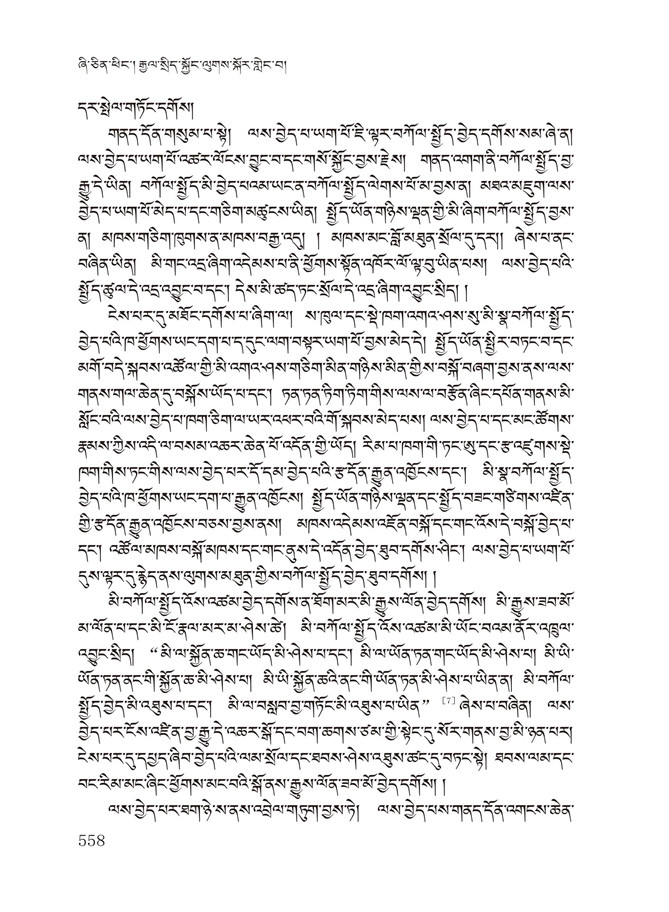 ཞི་ཅིན་ཕིང་། རྒྱལ་སྲིད་སྐྱོང་ལུགས་སྐོར་གླེང་བ།
དར་སྤེལ་གཏོང་དགོས།
གནད་དོན་གསུམ་པ་སྟེ། ལས་བྱེད་པ་ཡག་པོ་ཇི་ལྟར་བཀོལ་སྤྱོད་བྱེད་དགོས་སམ་ཞེ་ན།
ལས་བྱེད་པ་ཡག་པོ་འཚར་ལོངས་བྱུང་བ་དང་གསོ་སྐྱོང་བྱས་རྗེས། གནད་འགག་ནི་བཀོལ་སྤྱོད་བྱ་
རྒྱུ་དེ་ཡིན། བཀོལ་སྤྱོད་མི་བྱེད་པའམ་ཡང་ན་བཀོལ་སྤྱོད་ལེགས་པོ་མ་བྱས་ན། མཐའ་མཇུག་ལས་
བྱེད་པ་ཡག་པོ་མེད་པ་དང་གཅིག་མཚུངས་ཡིན། སྤྱོད་ཡོན་གཉིས་ལྡན་གྱི་མི་ཞིག་བཀོལ་སྤྱོད་བྱས་
ན། མཁས་གཅིག་ཁུགས་ན་མཁས་བརྒྱ་འདུ། ། མཁས་མང་བློ་མཐུན་སྲོལ་དུ་དར།། ཞེས་པ་ནང་
བཞིན་ཡིན། མི་གང་འདྲ་ཞིག་འདེམས་པ་ནི་ཕྱོགས་སྟོན་འཁོར་ལོ་ལྟ་བུ་ཡིན་པས། ལས་བྱེད་པའི་
སྤྱོད་ཚུལ་དེ་འདྲ་འབྱུང་བ་དང་། དེས་མི་ཚད་ཏང་སྲོལ་དེ་འདྲ་ཞིག་འབྱུང་སྲིད། །
ངེས་པར་དུ་མཐོང་དགོས་པ་ཞིག་ལ། ས་ཁུལ་དང་སྡེ་ཁག་འགའ་ཤས་སུ་མི་སྣ་བཀོལ་སྤྱོད་
བྱེད་པའི་ཁ་ཕྱོགས་ཡང་དག་པ་ད་དུང་ལག་བསྟར་ཡག་པོ་བྱས་མེད་དེ། སྤྱོད་ཡོན་སྤྱིར་བཏང་བ་དང་
མགོ་བདེ་སྐབས་འཚོལ་གྱི་མི་འགའ་ཤས་གཅིག་མིན་གཉིས་མིན་གྱིས་བསྐོ་བཞག་བྱས་ནས་ལས་
གནས་གལ་ཆེན་དུ་བསྐོས་ཡོད་པ་དང་། ཏན་ཏན་ཏིག་ཏིག་གིས་ལས་ལ་བརྩོན་ཞིང་དཔོན་གནས་མི་
སློང་བའི་ལས་བྱེད་པ་ཁག་ཅིག་ལ་ཡར་འཕར་བའི་གོ་སྐབས་མེད་པས། ལས་བྱེད་པ་དང་མང་ཚོགས་
རྣམས་ཀྱིས་འདི་ལ་བསམ་འཆར་ཆེན་པོ་འདོན་གྱི་ཡོད། རིམ་པ་ཁག་གི་ཏང་ཨུ་དང་རྩ་འཛུགས་སྡེ་
ཁག་གིས་ཏང་གིས་ལས་བྱེད་པར་དོ་དམ་བྱེད་པའི་རྩ་དོན་རྒྱུན་འཁྱོངས་དང་། མི་སྣ་བཀོལ་སྤྱོད་
བྱེད་པའི་ཁ་ཕྱོགས་ཡང་དག་པ་རྒྱུན་འཁྱོངས། སྤྱོད་ཡོན་གཉིས་ལྡན་དང་སྤྱོད་བཟང་གཙིགས་འཛིན་
གྱི་རྩ་དོན་རྒྱུན་འཁྱོངས་བཅས་བྱས་ནས། མཁས་འདེམས་འཇོན་བསྐོ་དང་གང་འོས་དེ་བསྐོ་བྱེད་པ་
དང་། འཚོལ་མཁས་བསྐོ་མཁས་དང་གང་ནུས་དེ་འདོན་བྱེད་ཐུབ་དགོས་ཤིང་། ལས་བྱེད་པ་ཡག་པོ་
དུས་ལྟར་དུ་རྙེད་ནས་ལུགས་མཐུན་གྱིས་བཀོལ་སྤྱོད་བྱེད་ཐུབ་དགོས། །
མི་བཀོལ་སྤྱོད་འོས་འཚམ་བྱེད་དགོས་ན་ཐོག་མར་མི་རྒྱུས་ལོན་བྱེད་དགོས། མི་རྒྱུས་ཟབ་མོ་
མ་ལོན་པ་དང་མི་ངོ་རྣལ་མར་མ་ཤེས་ཚེ། མི་བཀོལ་སྤྱོད་འོས་འཚམ་མི་ཡོང་བའམ་ནོར་འཁྲུལ་
འབྱུང་སྲིད། “མི་ལ་སྐྱོན་ཆ་གང་ཡོད་མི་ཤེས་པ་དང་། མི་ལ་ཡོན་ཏན་གང་ཡོད་མི་ཤེས་པ། མི་ཡི་
ཡོན་ཏན་ནང་གི་སྐྱོན་ཆ་མི་ཤེས་པ། མི་ཡི་སྐྱོན་ཆའི་ནང་གི་ཡོན་ཏན་མི་ཤེས་པ་ཡིན་ན། མི་བཀོལ་
སྤྱོད་བྱེད་མི་འཐུས་པ་དང་། མི་ལ་བསླབ་བྱ་གཏོང་མི་འཐུས་པ་ཡིན” [7] ཞེས་པ་བཞིན། ལས་
བྱེད་པར་ངོས་འཛིན་བྱ་རྒྱུ་དེ་འཆར་སྒོ་དང་བག་ཆགས་ཙམ་གྱི་སྟེང་དུ་སོར་གནས་བྱ་མི་ཉན་པར།
ངེས་པར་དུ་དཔྱད་ཞིབ་བྱེད་པའི་ལམ་སྲོལ་དང་ཐབས་ཤེས་འཐུས་ཚང་དུ་བཏང་སྟེ། ཐབས་ལམ་དང་
བང་རིམ་མང་ཞིང་ཕྱོགས་མང་བའི་སྒོ་ནས་རྒྱུས་ལོན་ཟབ་མོ་བྱེད་དགོས། །
ལས་བྱེད་པར་ཐག་ཉེ་ས་ནས་འབྲེལ་གཏུག་བྱས་ཏེ། ལས་བྱེད་པས་གནད་དོན་འགངས་ཆེན་
558